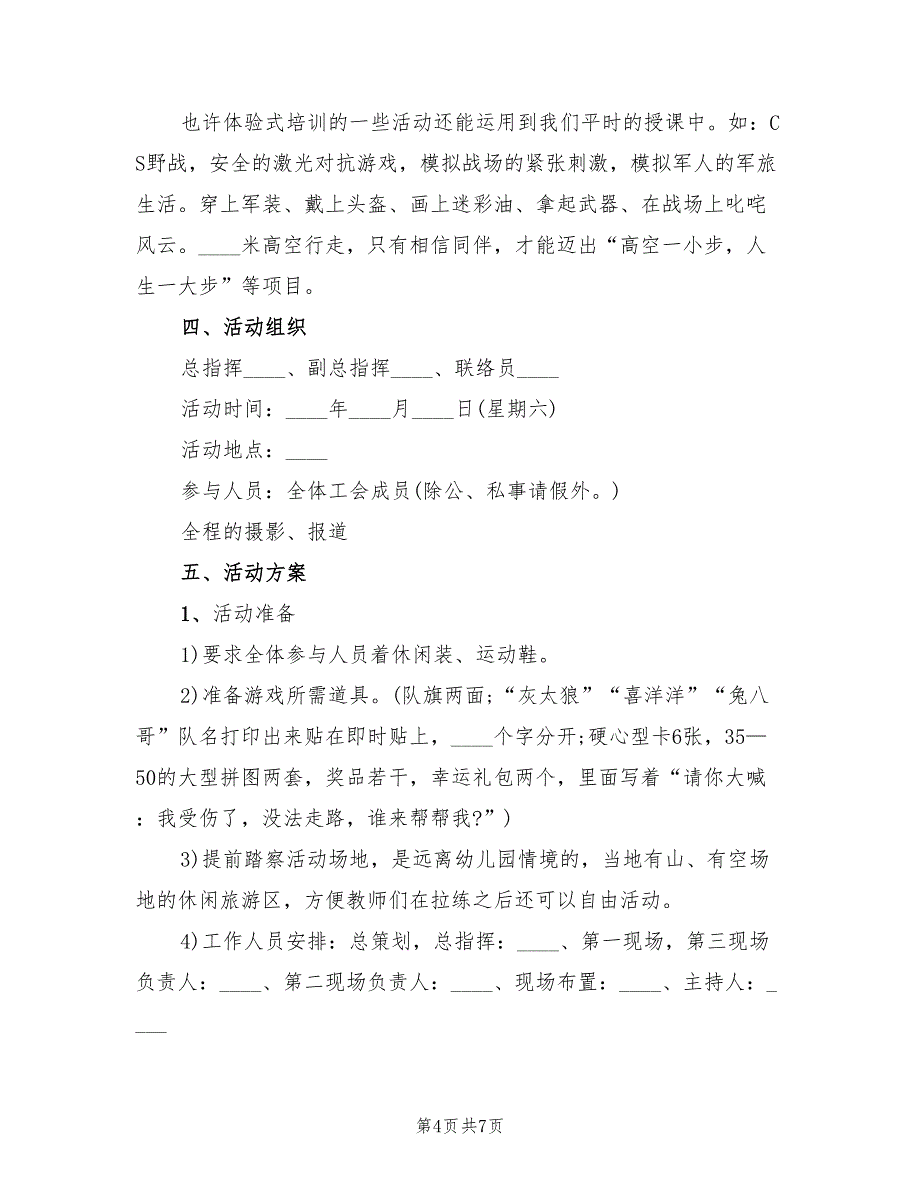 也许体验式培训的一些活动还能运用到我们平时的授课中。如：C
S野战，安全的激光对抗游戏，模拟战场的紧张刺激，模拟军人的军旅
生活。穿上军装、戴上头盔、画上迷彩油、拿起武器、在战场上叱咤
风云。____米高空行走，只有相信同伴，才能迈出“高空一小步，人
生一大步”等项目。
四、活动组织
总指挥____、副总指挥____、联络员____
活动时间：____年____月____日(星期六)
活动地点：____
参与人员：全体工会成员(除公、私事请假外。)
全程的摄影、报道
五、活动方案
1、活动准备
1)要求全体参与人员着休闲装、运动鞋。
2)准备游戏所需道具。(队旗两面;“灰太狼”“喜洋洋”“兔八
哥”队名打印出来贴在即时贴上，____个字分开;硬心型卡6张，35—
50的大型拼图两套，奖品若干，幸运礼包两个，里面写着“请你大喊
：我受伤了，没法走路，谁来帮帮我?”)
3)提前踏察活动场地，是远离幼儿园情境的，当地有山、有空场
地的休闲旅游区，方便教师们在拉练之后还可以自由活动。
4)工作人员安排：总策划，总指挥：____、第一现场，第三现场
负责人：____、第二现场负责人：____、现场布置：____、主持人：_
___
第4页共7页